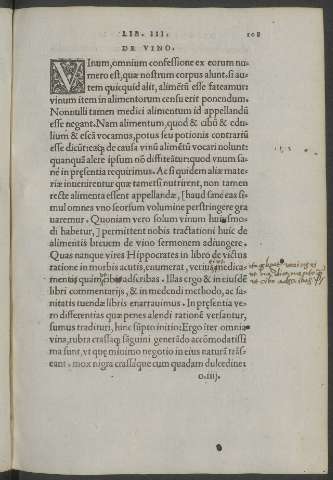 LIB. III. 108
DE VINO.
VInum, omnium confessione ex eorum nu-
mero est, quæ nostrum corpus alunt. si au-
tem quicquid alit, alimẽtũ esse fateamur:
vinum item in alimentorum censu erit ponendum.
Nonnulli tamen medici alimentum id appellandũ
esse negant. Nam alimentum, quod & cibũ & edu-
lium & escã vocamus, potus seu potionis contrariũ
esse dicũt: eaq; de causa vinũ alimẽtũ vocari nolunt:
quanquã alere ipsum nõ diffiteãtur: quod vnum sa-
nè in præsentia requirimus. Ac si quidem aliæ mate-
riæ inuenirentur quæ tametsi nutrirent, non tamen
recte alimenta essent appellandæ, [haud sanè eas si-
mul omnes vno seorsum volumine perstringere gra
uaremur. Quoniam vero solum vinum huiusmo-
di habetur,] permittent nobis tractationi huic de
alimentis breuem de vino sermonem adiungere.
Quas nanque vires Hippocrates in libro de victus
ratione in morbis acutis, enumerat, verius medica-
mentis quàm cibis adscribas. Illas ergo & in eiusdẽ
libri commentarijs, & in medendi methodo, ac sa-
nitatis tuendæ libris enarrauimus. In præsentia ve-
ro differentias quæ penes alendi rationẽ versantur,
sumus tradituri, hinc sũpto initio: Ergo iter omnia
vina, rubra crassaq; sãguini generãdo accõmodatissi
ma sunt, vt quæ minimo negotio in eius naturã trãs-
eant. mox nigra crassáque cum quadam dulcedine:
O.iiij.